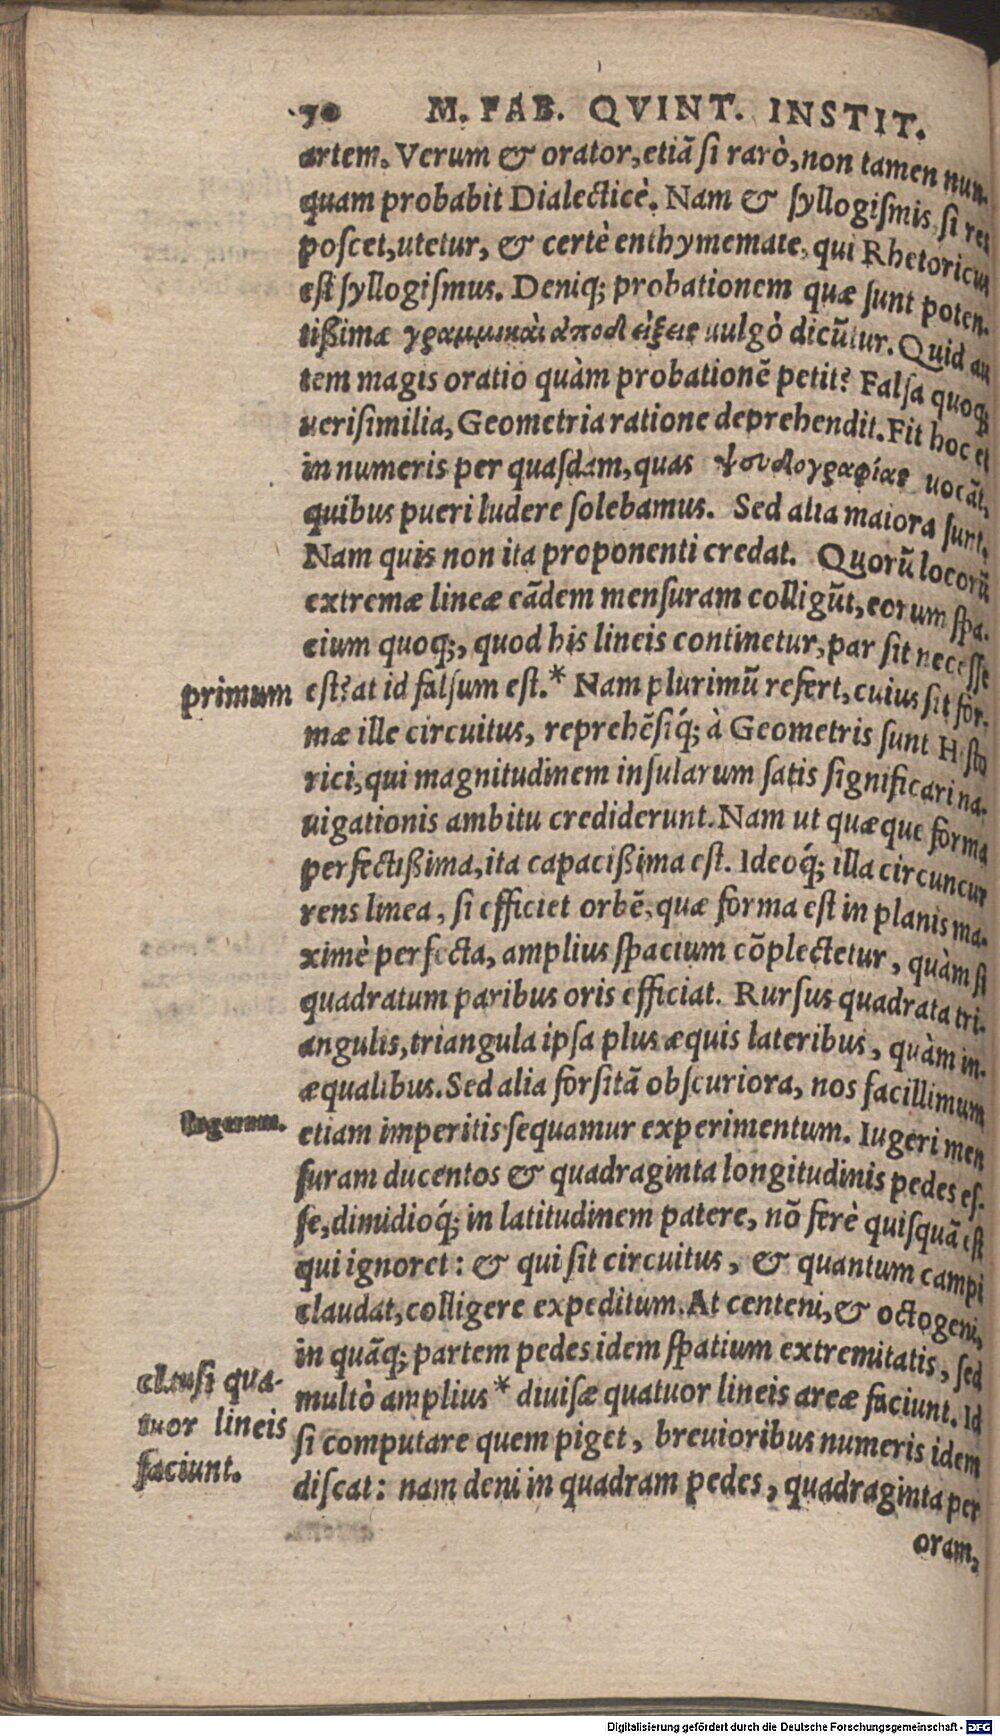 70 M. FAB. QVINT. INSTIT.
artem. Verum & orator, etiã si rarò, non tamen nun-
quam probabit Dialecticè. Nam & syllogismis si res
poscet, utetur, & certè enthymemate, qui Rhetoricus
est syllogismus. Deniq; probationem quæ sunt poten-
tißimæ γραμμικαὶ ἀποδείξεις uulgò dicũtur. Quid au
tem magis oratio quàm probationẽ petit? Falsa quoq;
uerisimilia, Geometria ratione deprehendit. Fit hoc et
in numeris per quasdam, quas ψευδογραφίας uocãt,
quibus pueri ludere solebamus. Sed alia maiora sunt.
Nam quis non ita proponenti credat. Quorũ locorũ
extremæ lineæ eãdem mensuram colligũt, eorum spa-
cium quoq;, quod his lineis continetur, par sit necesse
primum est? at id falsum est.* Nam plurimũ refert, cuius sit for-
mæ ille circuitus, reprehẽsiq́; à Geometris sunt Histo
rici, qui magnitudinem insularum satis significari na-
uigationis ambitu crediderunt. Nam ut quæque forma
perfectißima, ita capacißima est. Ideoq́; illa circuncur
rens linea, si efficiet orbẽ, quæ forma est in planis ma-
ximè perfecta, amplius spacium cõplectetur, quàm si
quadratum paribus oris efficiat. Rursus quadrata tri-
angulis, triangula ipsa plus æquis lateribus, quàm in-
æqualibus. Sed alia forsitã obscuriora, nos facillimum
etiam imperitis sequamur experimentum. Iugeri men
suram ducentos & quadraginta longitudinis pedes es-
se, dimidioq́; in latitudinem patere, nõ ferè quisquã est
qui ignoret: & qui sit circuitus, & quantum campi
claudat, colligere expeditum. At centeni, & octogeni,
in quãq; partem pedes idem spatium extremitatis, sed
clausi qua- multò amplius* diuisæ quatuor lineis areæ faciunt. Id
tuor lineis si computare quem piget, breuioribus numeris idem
faciunt. discat: nam deni in quadram pedes, quadraginta per
oram,
Digitalisierung gefördert durch die Deutsche Forschungsgemeinschaft - DFG